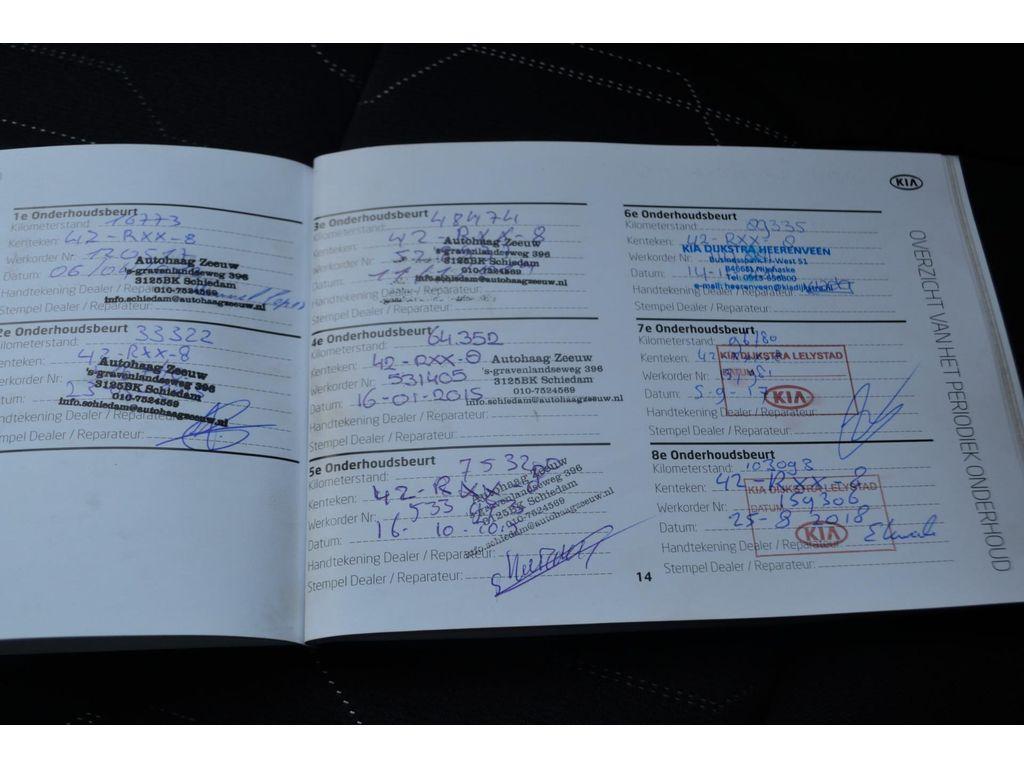 1e Onderhoudsbeurt
Kilometerstand: 16773
Kenteken: 42-RXX-8
Werkorder Nr:
Datum: 06/0
Autohaag Zeeuw
's-gravenlandseweg 396
3125BK Schiedam
010-7524569
info.schiedam@autohaagzeeuw.nl
Handtekening Dealer / Reparateur:
Stempel Dealer / Reparateur:
2e Onderhoudsbeurt
Kilometerstand: 33322
Kenteken: 42-RXX-8
Werkorder Nr:
Datum: 23
Autohaag Zeeuw
's-gravenlandseweg 396
3125BK Schiedam
010-7524569
info.schiedam@autohaagzeeuw.nl
Handtekening Dealer / Reparateur:
Stempel Dealer / Reparateur:
3e Onderhoudsbeurt
Kilometerstand: 48474
Kenteken: 42-RXX-8
Werkorder Nr:
Datum:
Autohaag Zeeuw
's-gravenlandseweg 396
3125BK Schiedam
010-7524569
info.schiedam@autohaagzeeuw.nl
Handtekening Dealer / Reparateur:
Stempel Dealer / Reparateur:
4e Onderhoudsbeurt
Kilometerstand: 64.352
Kenteken: 42-RXX-8
Werkorder Nr: 531405
Datum: 16-01-2015
Autohaag Zeeuw
's-gravenlandseweg 396
3125BK Schiedam
010-7524569
info.schiedam@autohaagzeeuw.nl
Handtekening Dealer / Reparateur:
Stempel Dealer / Reparateur:
5e Onderhoudsbeurt
Kilometerstand: 75320
Kenteken: 42-RXX-8
Werkorder Nr: 533
Datum: 16-10-
Autohaag Zeeuw
's-gravenlandseweg 396
3125BK Schiedam
010-7524569
info.schiedam@autohaagzeeuw.nl
Handtekening Dealer / Reparateur:
Stempel Dealer / Reparateur:
14
KIA
6e Onderhoudsbeurt
Kilometerstand: 89335
Kenteken: 42-RXX-8
Werkorder Nr:
Datum: 14-1
KIA DIJKSTRA HEERENVEEN
Businesspark Fr-West 51
8466SL Nijehaske
Tel: 0513-656800
e-mail: heerenveen@kiadijkstra
Handtekening Dealer / Reparateur:
Stempel Dealer / Reparateur:
7e Onderhoudsbeurt
Kilometerstand: 96180
Kenteken: 42
Werkorder Nr:
Datum: 5-9-17
KIA DIJKSTRA LELYSTAD
DATUM
KIA
Handtekening Dealer / Reparateur:
Stempel Dealer / Reparateur:
8e Onderhoudsbeurt
Kilometerstand: 103093
Kenteken: 42-RXX-8
Werkorder Nr: 159306
Datum: 25-8-2018
KIA DIJKSTRA LELYSTAD
DATUM
KIA
Handtekening Dealer / Reparateur:
Stempel Dealer / Reparateur:
OVERZICHT VAN HET PERIODIEK ONDERHOUD